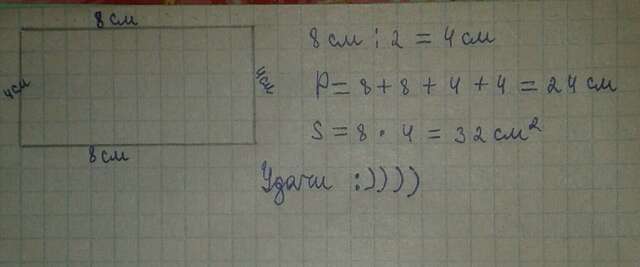 8 см
4см
4см
8 см
8 см : 2 = 4 см
P = 8 + 8 + 4 + 4 = 24 см
S = 8 · 4 = 32 см²
Удачи :))))